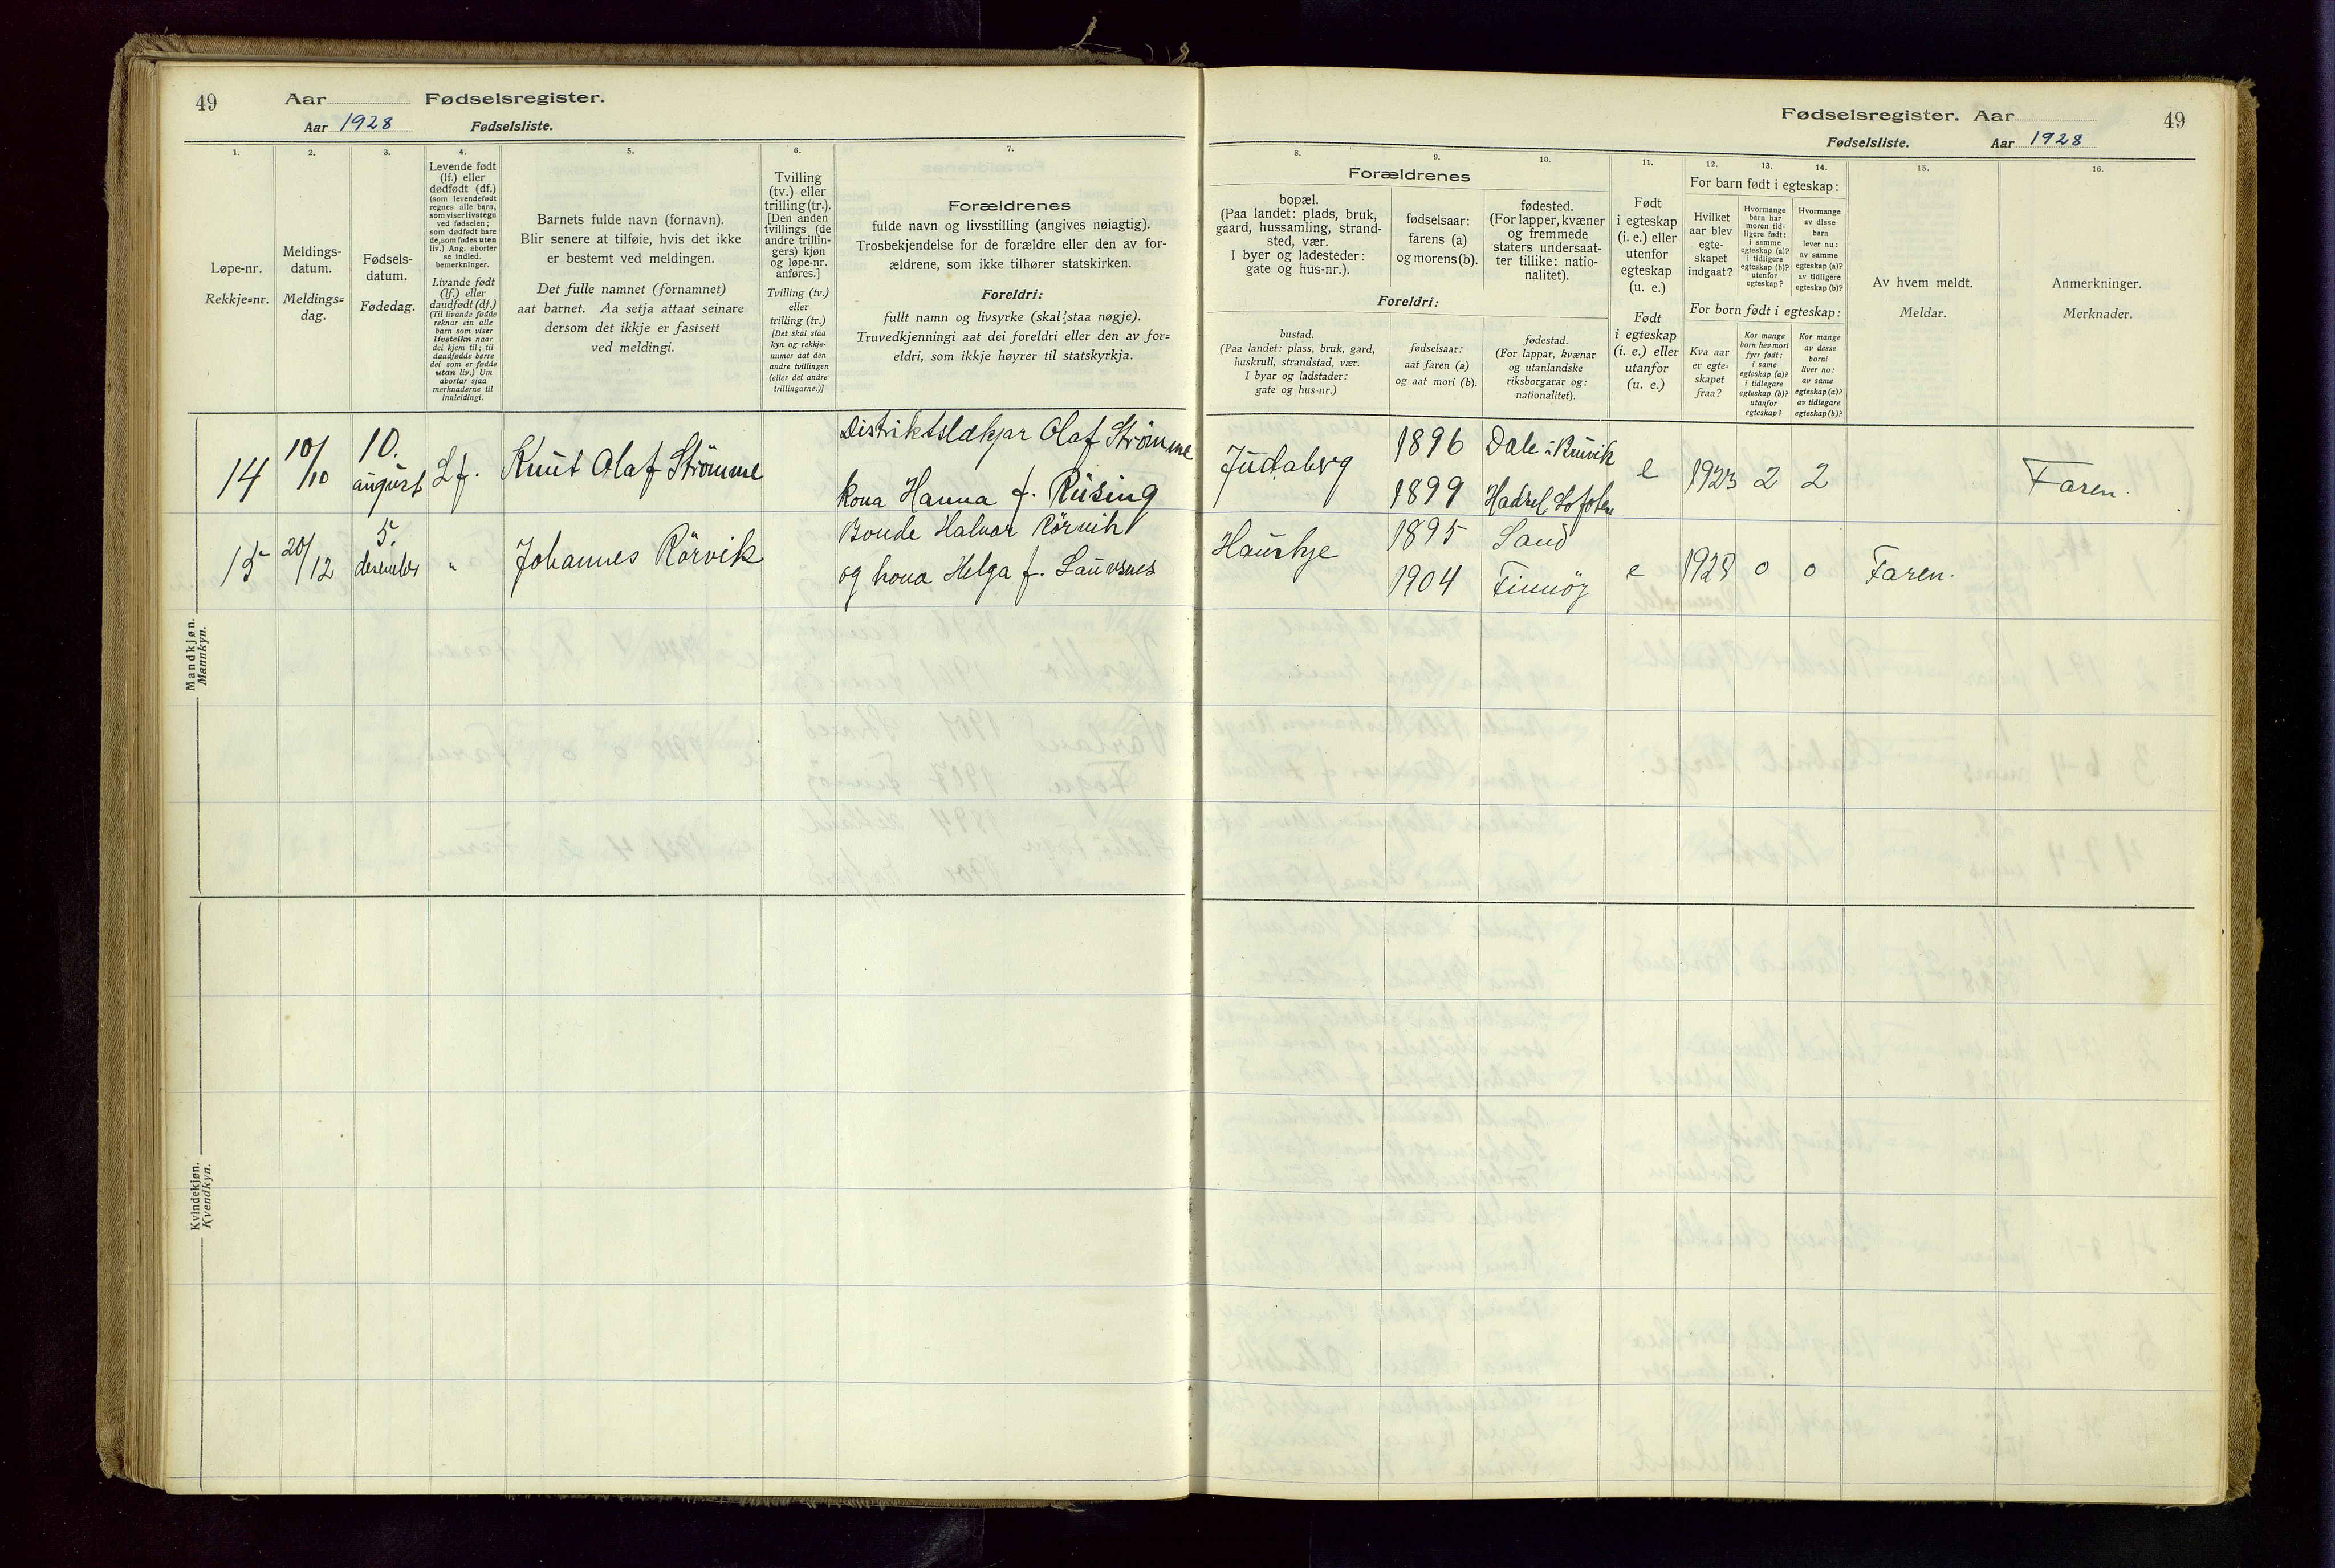 49
Aar Fødselsregister.
Aar 1928 Fødselsliste.
1.
2.
3.
4.
5.
6.
7.
Løpe-nr.
Rekkje=nr.
Meldings-
datum.
Meldings=
dag.
Fødsels-
datum.
Fødedag.
Levende født
(lf.) eller
dødfødt (df.)
(som levendefødt
regnes alle barn,
som viser livstegn
ved fødselen;
som dødfødt bare
de, som fødes uten
liv.) Ang. aborter
se indled.
bemerkninger.
Livande født
(lf.) eller
daudfødt (df.)
(Til livande fødde
reknar ein alle
born som viser
livsteikn naar
dei kjem til; til
daudfødde berre
dei som er fødde
utan liv.) Um
abortar sjaa
merknaderne til
innleidingi.
Barnets fulde navn (fornavn).
Blir senere at tilføie, hvis det ikke
er bestemt ved meldingen.
Det fulle namnet (fornamnet)
aat barnet. Aa setja attaat seinare
dersom det ikkje er fastsett
ved meldingi.
Tvilling
(tv.) eller
trilling (tr.).
[Den anden
tvillings (de
andre trillin-
gers) kjøn
og løpe-nr.
anføres.]
Tvilling (tv.)
eller
trilling (tr.)
[Det skal staa
kyn og rekkje-
numer aat den
andre tvillingen
(eller dei andre
trillingarne.)]
Forældrenes
fulde navn og livsstilling (angives nøiagtig).
Trosbekjendelse for de forældre eller den av for-
ældrene, som ikke tilhører statskirken.
Foreldri:
fullt namn og livsyrke (skal staa nøgje).
Truvedkjenningi aat dei foreldri eller den av for=
eldri, som ikkje høyrer til statskyrkja.
Mandkjøn.
Mannkyn.
14 10/10 10. august Lf. Knut Olaf Strömme
Distriktslækjar Olaf Strömme
kona Hanna f. Rüsing
15 20/12 5. desember " Johannes Rörvik
Bonde Halvor Rörvik
og kona Helga f. Lauvsnes
Kvindekjøn.
Kvendkyn.
Fødselsregister. Aar
49
Fødselsliste. Aar 1928
8.
9.
10.
11.
12.
13.
14.
15.
16.
Forældrenes
bopæl.
(Paa landet: plads, bruk,
gaard, hussamling, strand-
sted, vær.
I byer og ladesteder:
gate og hus-nr.).
fødselsaar:
farens (a)
og morens (b).
fødested.
(For lapper, kvæner
og fremmede
staters undersaat-
ter tillike: natio-
nalitet).
Foreldri:
bustad.
(Paa landet: plass, bruk, gard,
huskrull, strandstad, vær.
I byar og ladstader:
gate og hus=nr.)
fødselsaar:
aat faren (a)
og aat mori (b).
fødestad.
(For lappar, kvænar
og utanlandske
riksborgarar og:
nationalitet).
Født
i egteskap
(i. e.) eller
utenfor
egteskap
(u. e.)
Født
i egteskap
(i. e.) eller
utanfor
(u. e.)
For barn født i egteskap:
Hvilket
aar blev
egte-
skapet
indgaat?
Hvormange
barn har
moren tid-
ligere født:
i samme
egteskap (a)?
i tidligere
egteskap (b)?
utenfor
egteskap?
Hvormange
av disse
barn
lever nu:
av samme
egteskap (a)?
av tidligere
egteskap (b)?
For born født i egteskap:
Kva aar
er egte=
skapet
fraa?
Kor mange
born hev mori
fyrr født:
i same
egteskap (a)?
i tidlegare
egteskap (b)?
utanfor
egteskap?
Kor mange
av desse
borni
liver no:
av same
egteskap (a)?
av tidlegare
egteskap (b)?
Av hvem meldt.
Meldar.
Anmerkninger.
Merknader.
1896 Dale i
Judaberg e 1923 2 2 Faren.
1899 Hadsel Lofoten
1895 Sand
Hauskje e 1928 0 0 Faren.
1904 Finnöy